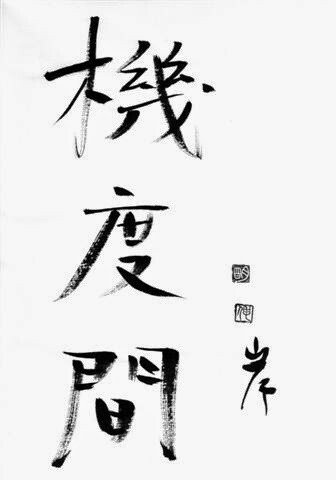 機度間
岸